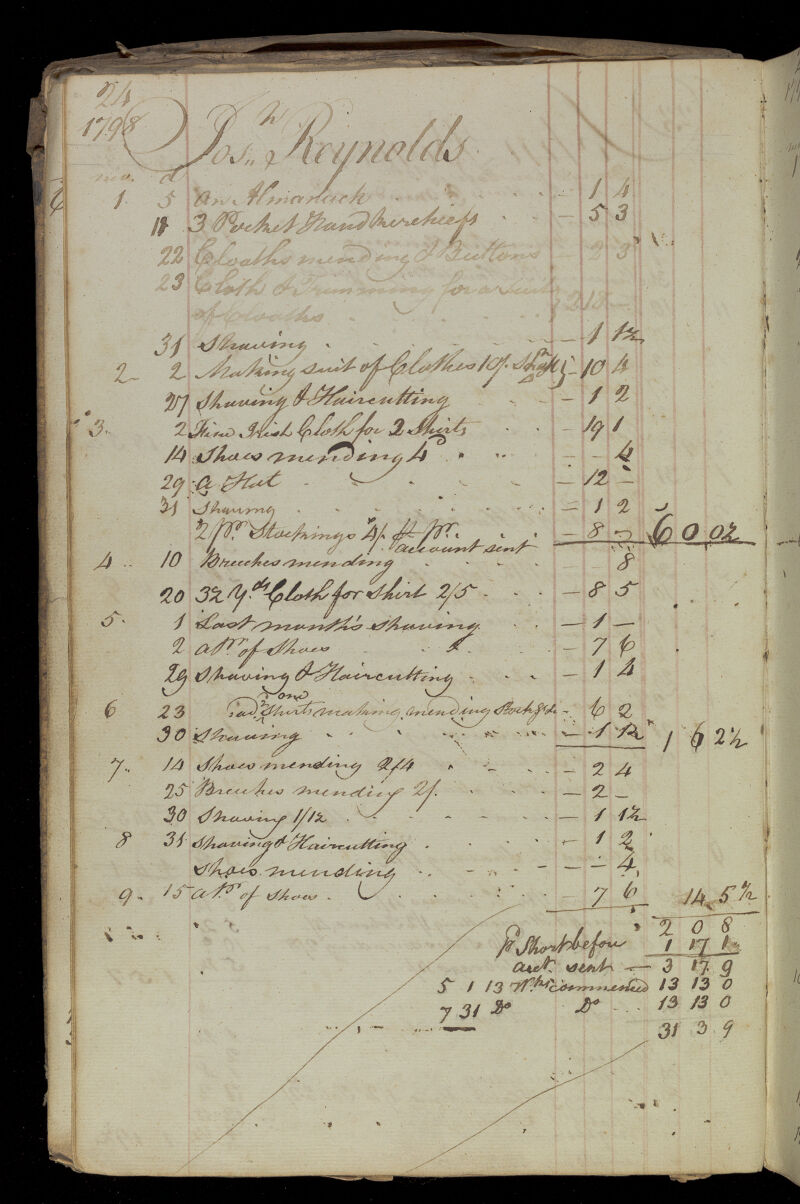 24
1798
Jos.h Reynolds
mo. d
1 5 an Almanack - 1 4
18 3 Pocket Handkerchiefs - 5 3
22 Cloaths mending & Buttons - 2 3
23 Cloth & Trimming for a Suit
of Cloaths 2 18 -
31 Shaving - 1 1½
2 2 Making suit of Clothes 10/. - 10 4
27 Shaving & Haircutting - 1 2
3 2 Fine Irish Cloth for 2 Shirts - 19 1
14 Shoes mending 4d - - 4
29 a Hat - 12 -
31 Shaving - 1 2
2 pr. Stockings 4/. pr. - 8 - 6 0 0½
account sent
4 10 Breeches mending 8
20 3½ Yds Cloth for Shirt 2/5 - 8 5
5 1 Last month's shaving - 1 -
2 a Pr. of Shoes - 7 6
29 Shaving & Haircutting - 1 4
one
6 23 shirts making mending - 6 2
30 Shaving - 1 1½ 1 6 2½
7 14 Shoes mending 2/4 - 2 4
25 Breeches mending 2/. - 2 -
30 Shaving 1/1½ - 1 1½
8 31 Shaving & Haircutting - 1 2
Shoes mending - - 4
9 15 a Pr. of Shoes - 7 6 14 5½
2 0 8
Short before 1 17 1
acct. sent - 3 17 9
5 1 13 commenced 13 13 0
7 31 Do Do 13 13 0
31 3 9